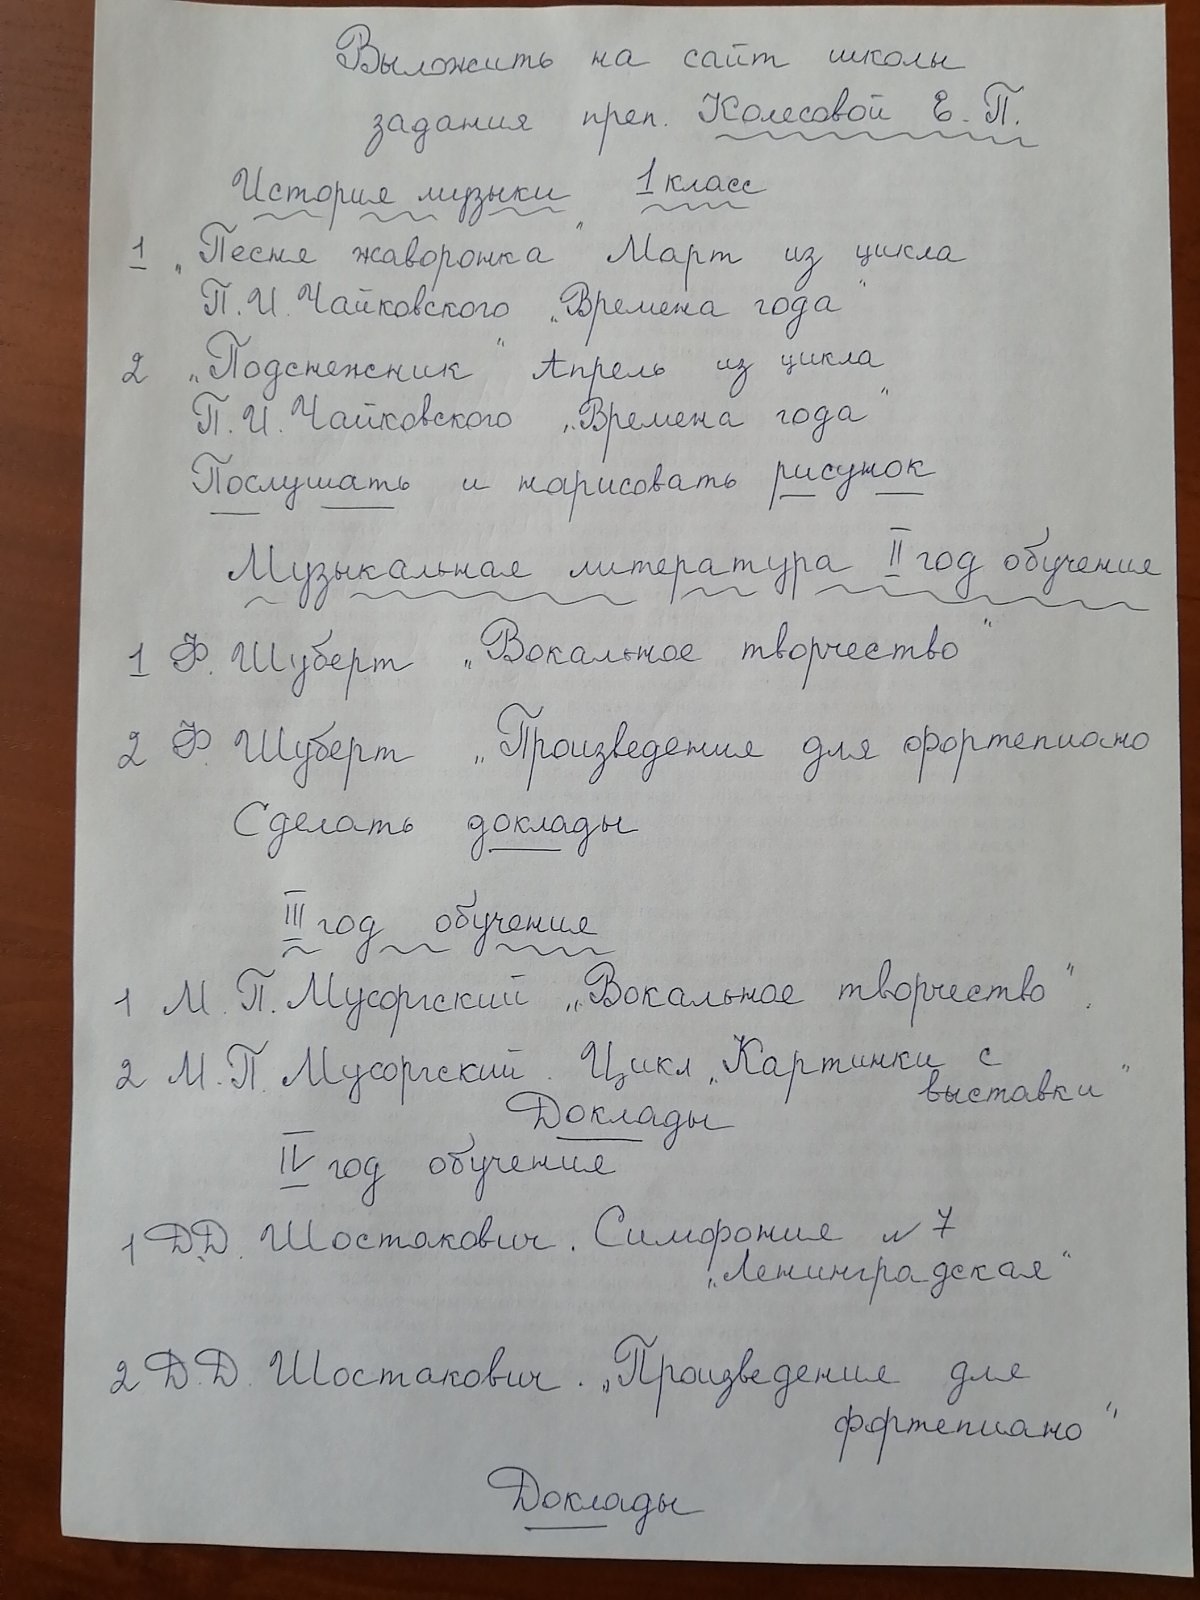 Выложить на сайт школы
задания преп. Колесовой Е. П.
История музыки 1 класс
1 „Песня жаворонка" Март из цикла
П. И. Чайковского „Времена года"
2 „Подснежник" Апрель из цикла
П. И. Чайковского „Времена года"
Послушать и нарисовать рисунок
Музыкальная литература II год обучения
1 Ф. Шуберт „Вокальное творчество"
2 Ф. Шуберт „Произведения для фортепиано
Сделать доклады
III год обучения
1 М. П. Мусоргский „Вокальное творчество".
2 М. П. Мусоргский. Цикл „Картинки с
выставки"
Доклады
IV год обучения
1 Д.Д. Шостакович. Симфония № 7
„Ленинградская"
2 Д.Д. Шостакович. „Произведения для
фортепиано"
Доклады